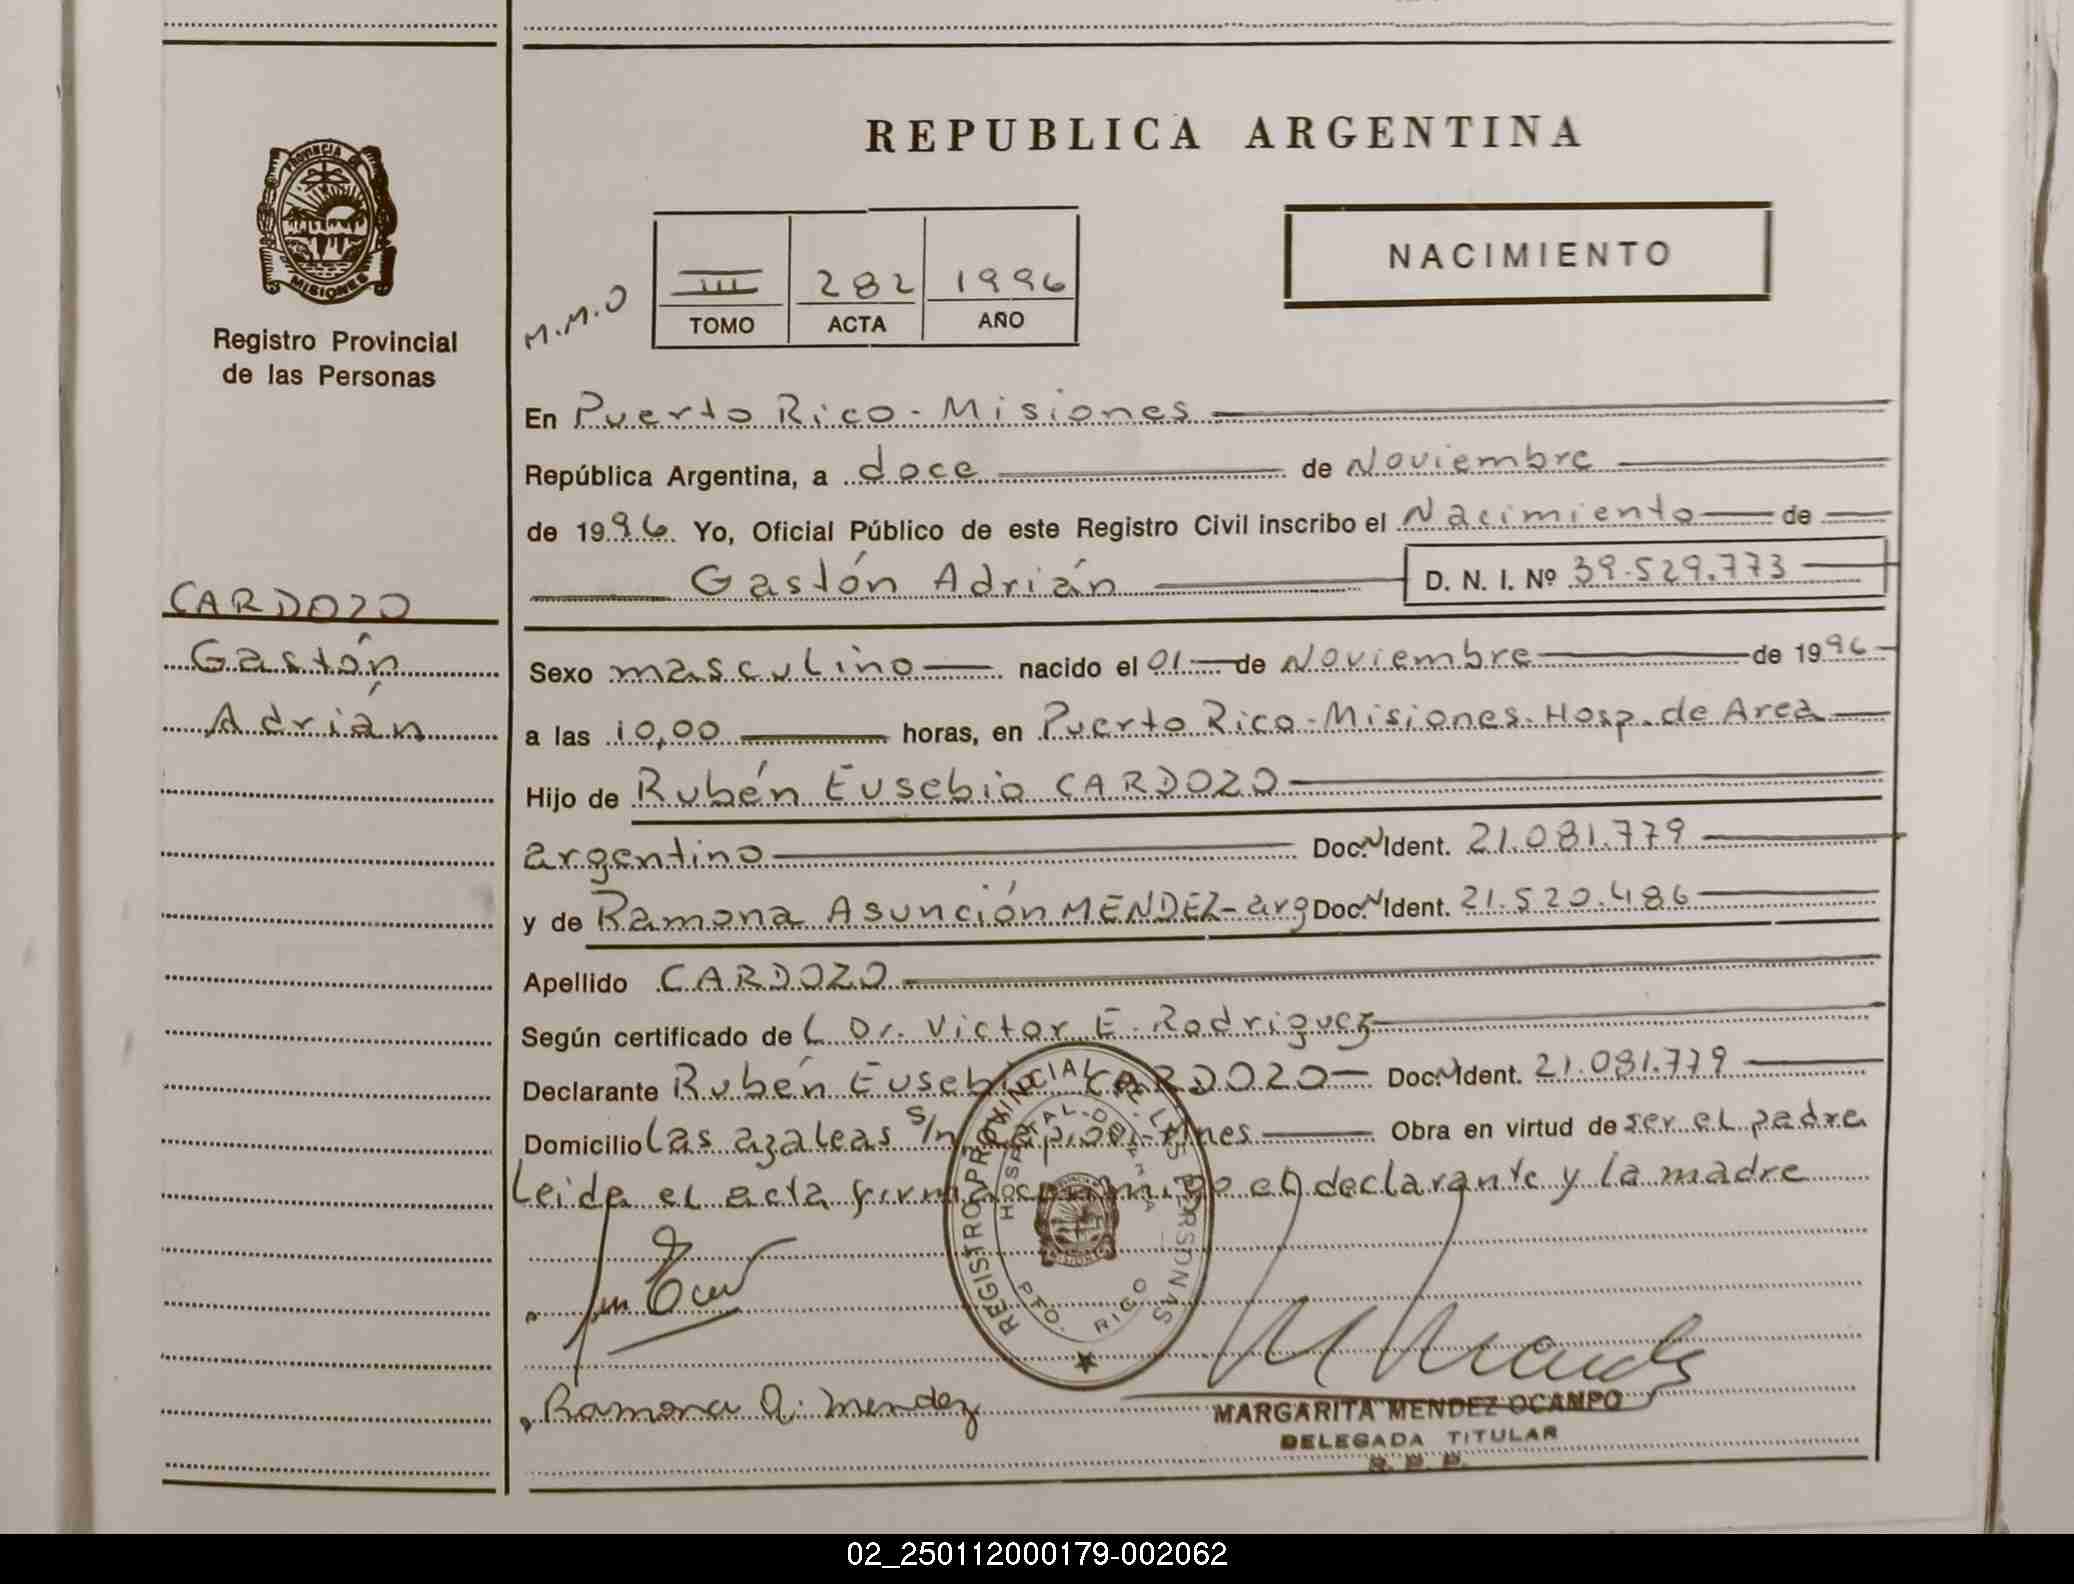 PROVINCIA DE
MISIONES
Registro Provincial
de las Personas
CARDOZO
Gastón
Adrián
REPUBLICA ARGENTINA
NACIMIENTO
M.M.O
III 282 1996
TOMO ACTA AÑO
En Puerto Rico - Misiones
República Argentina, a doce de Noviembre
de 1996. Yo, Oficial Público de este Registro Civil inscribo el Nacimiento de
Gastón Adrián D. N. I. Nº 39.529.773
Sexo masculino nacido el 01 de Noviembre de 1996
a las 10,00 horas, en Puerto Rico - Misiones. Hosp. de Area
Hijo de Rubén Eusebio CARDOZO
argentino Doc. N Ident. 21.081.779
y de Ramona Asunción MENDEZ - arg Doc. N Ident. 21.520.486
Apellido CARDOZO
Según certificado del Dr. Victor E. Rodriguez
Declarante Rubén Eusebio CARDOZO Doc. N Ident. 21.081.779
Domicilio Las azaleas s/n Mnes Obra en virtud de ser el padre
Leida el acta firma conmigo el declarante y la madre
REGISTRO PROVINCIAL DE LAS PERSONAS
HOSPITAL DE AREA
PTO. RICO
Ramona A. Mendez
MARGARITA MENDEZ OCAMPO
DELEGADA TITULAR
R. P. P.
02_250112000179-002062